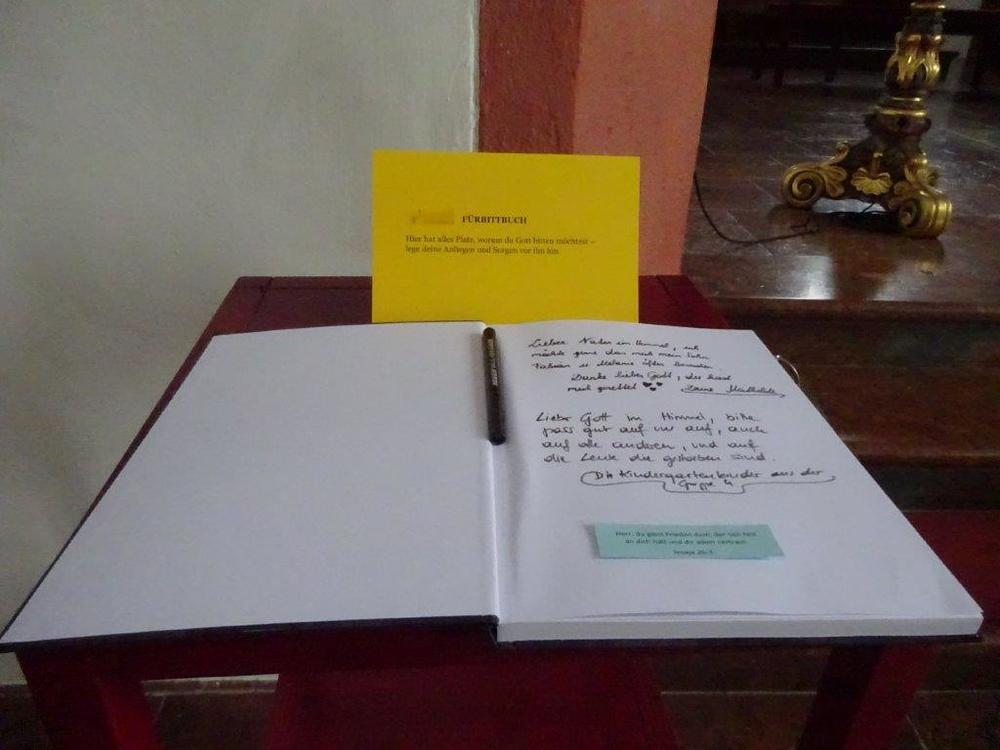 FÜRBITTBUCH
Hier hat alles Platz, worum du Gott bitten möchtest –
lege deine Anliegen und Sorgen vor ihn hin.
Lieber Vater im Himmel, ich
möchte gerne das mich mein Sohn
Fabian u Melanie öfter besuchen.
Danke lieber Gott, du hast
mich gerettet
Liebe Gott im Himmel, bitte
pass gut auf uns auf, auch
auf alle anderen, und auf
die Leute die gestorben sind.
Die Kindergartenkinder aus der
Gruppe 4
Herr, du gibst Frieden dem, der sich fest
an dich hält und dir allein vertraut.
Jesaja 26:3